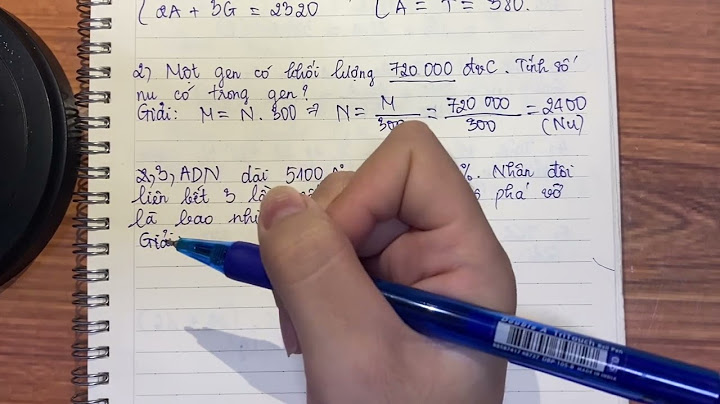 2A + 3G = 2320
A = T = 380.
2, Một gen có khối lượng 720 000 đvC. Tính số
nu có trong gen?
Giải: M = N. 300 ⇒ N = M/300 = 720 000/300 = 2400
(Nu)
2,3, ADN dài 5100 %. Nhân đôi
liên kết 3 phá vỡ
là bao
Giải
InTouch